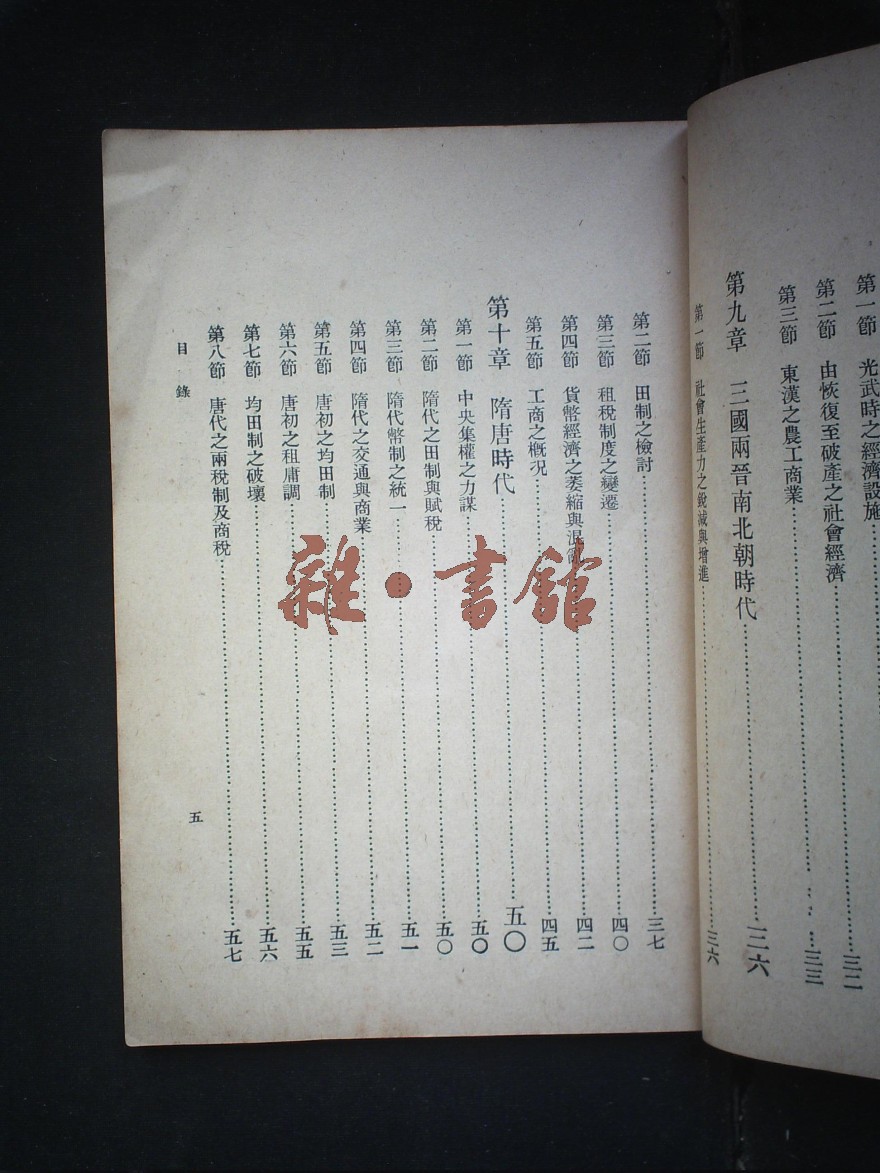 第一節 光武時之經濟設施
第二節 由恢復至破產之社會經濟……三二
第三節 東漢之農工商業……三三
第九章 三國兩晉南北朝時代……三六
第一節 社會生產力之銳減與增進……三六
第二節 田制之檢討……三七
第三節 租稅制度之變遷……四〇
第四節 貨幣經濟之萎縮與混……四二
第五節 工商之概況……四五
第十章 隋唐時代……五〇
第一節 中央集權之力謀……五〇
第二節 隋代之田制與賦稅……五〇
第三節 隋代幣制之統一……五一
第四節 隋代之交通與商業……五二
第五節 唐初之均田制……五三
第六節 唐初之租庸調……五五
第七節 均田制之破壞……五六
第八節 唐代之兩稅制及商稅……五七
目錄
五
雜·書館